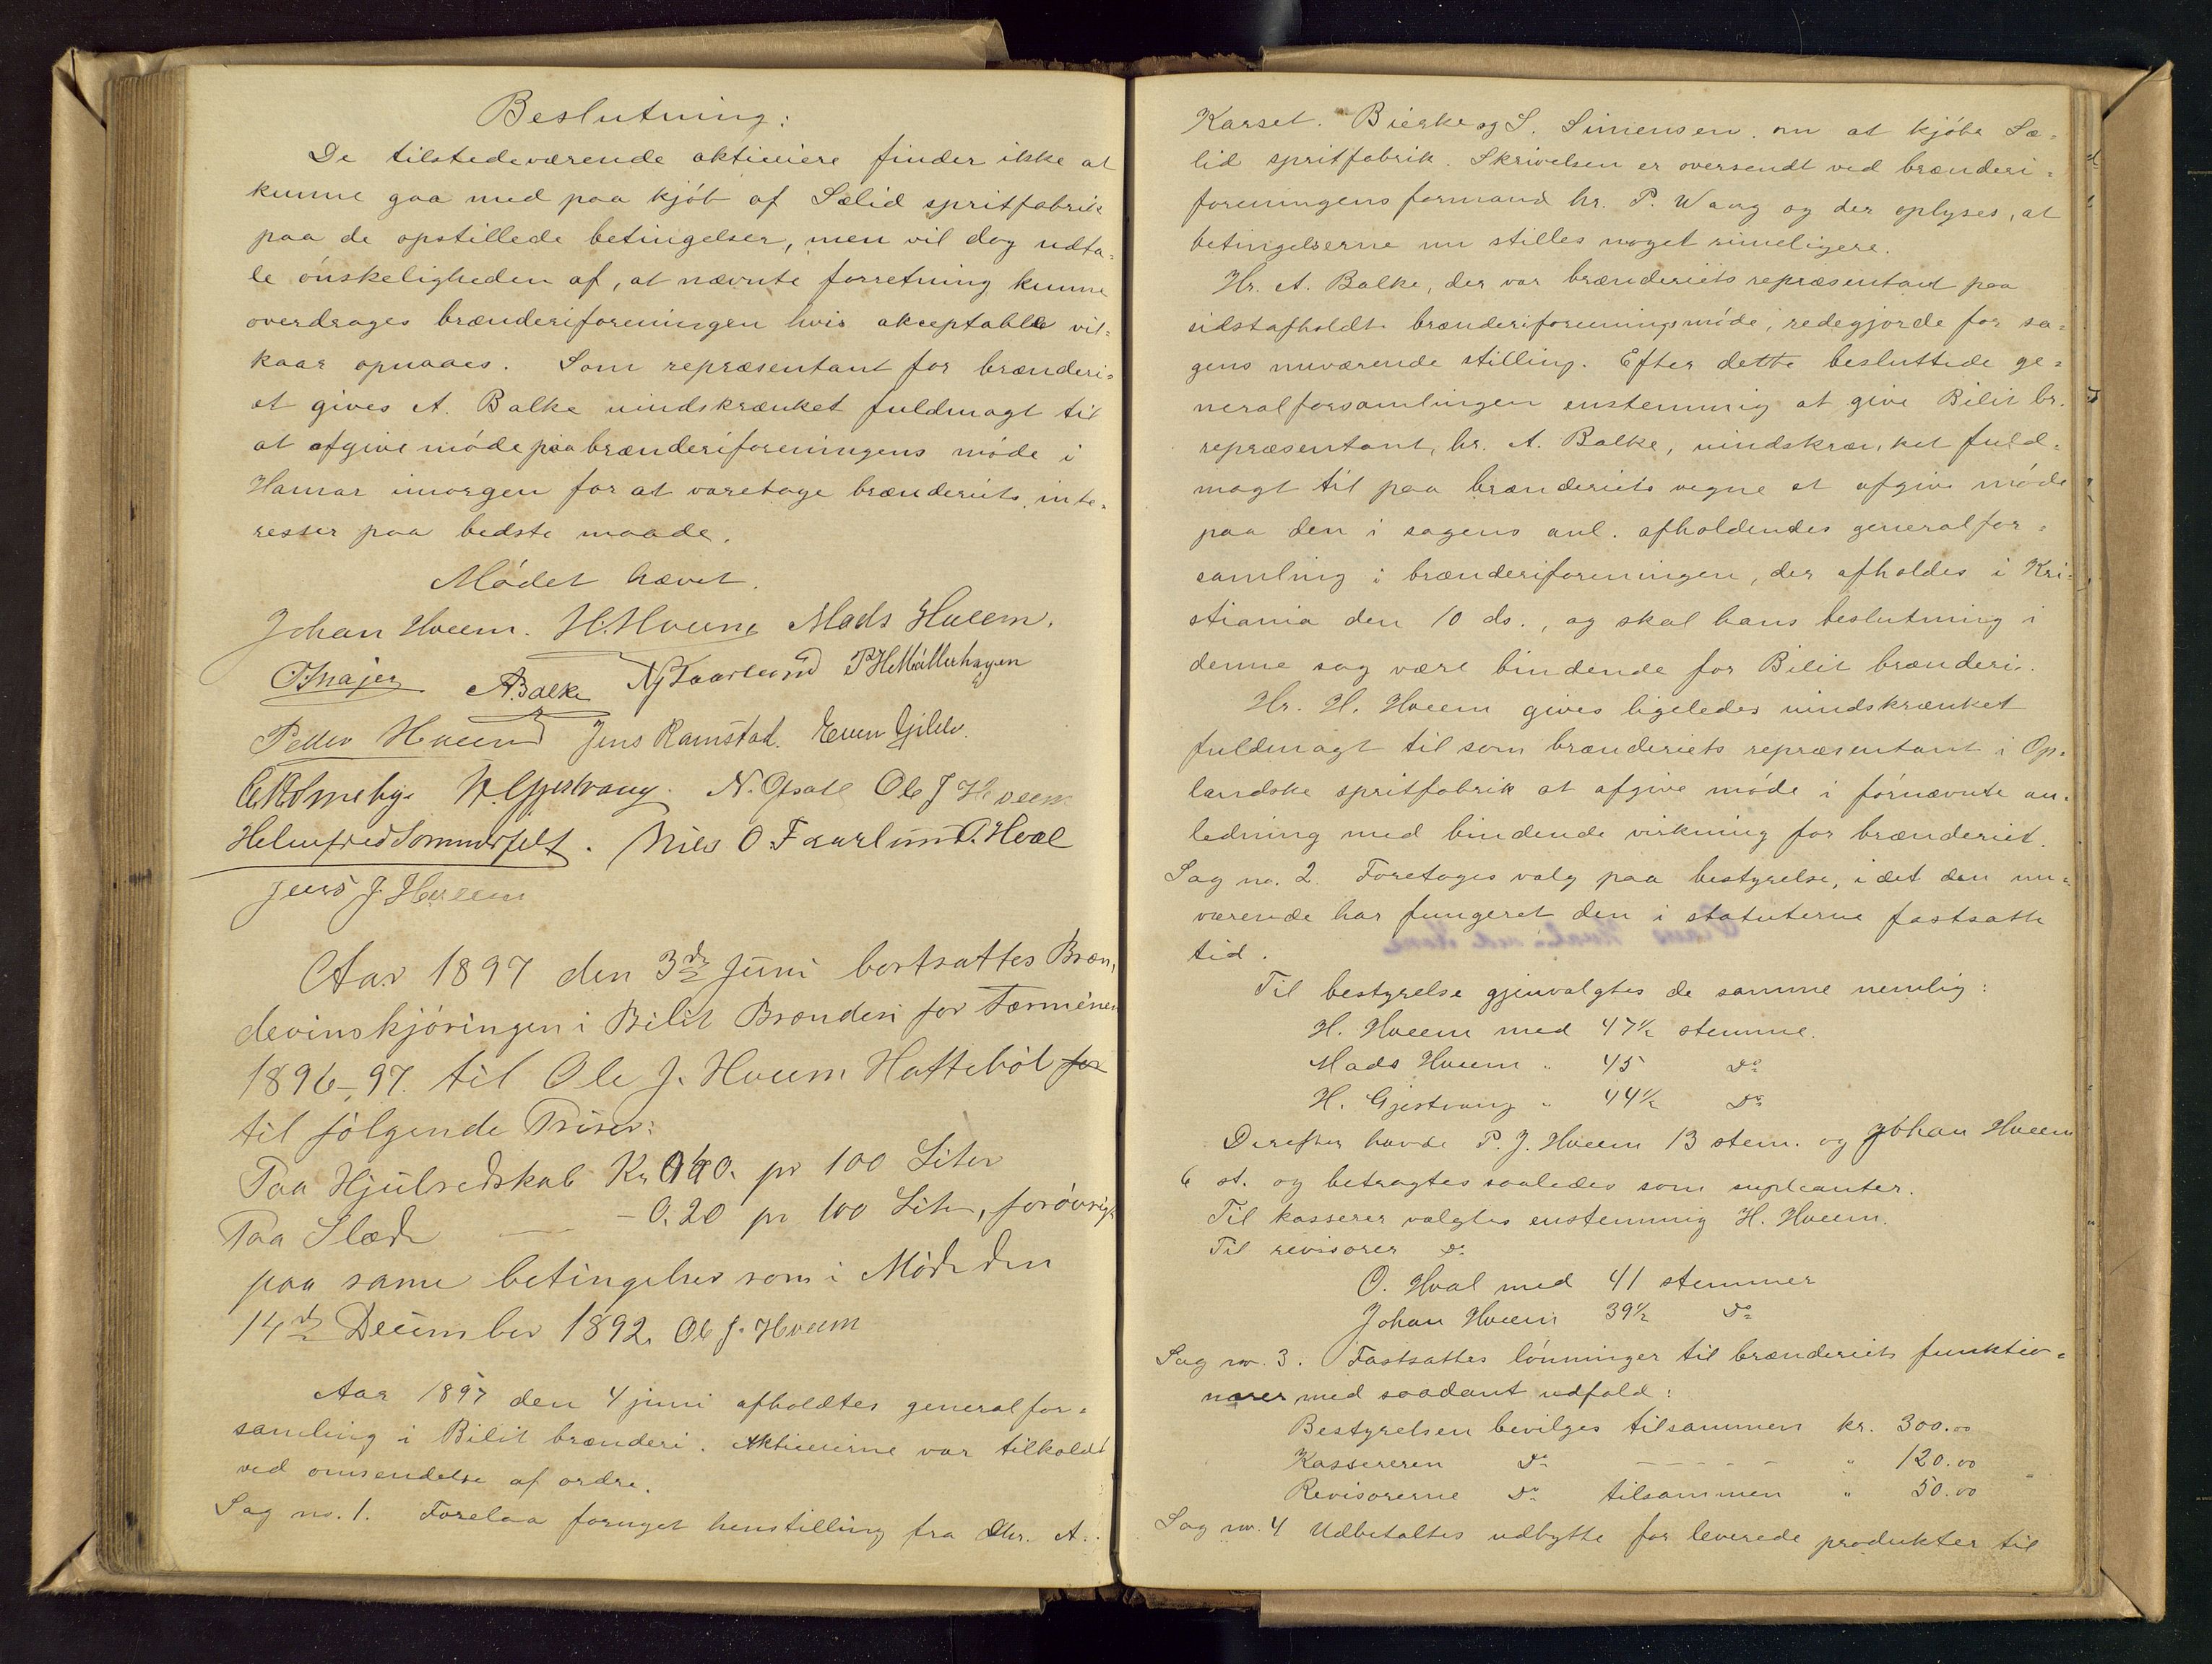 Beslutning:
De tilstedeværende aktieiere finder ikke at
kunne gaa med paa kjøb af Sælid spritfabrik
paa de opstillede betingelser, men vil dog udta-
le ønskeligheden af, at nævnte forretning kunne
overdrages brænderiforeningen hvis akceptable vil-
kaar opnaaes. Som repræsentant for brænderi-
et gives A. Balke uindskrænket fuldmagt til
at afgive møde paa brænderiforeningens møde i
Hamar imorgen for at varetage brænderiets inte-
resser paa bedste maade.
Mødet hævet.
Johan Hveem. H. Hveem Mads Hveem.
A. Balke N J Faarlund P H Møllerhagen
Peder Hveem Jens Ramstad. Even Gjilelv.
H. Gjestvang. N. Gsall Ole J Hveem
Helmfred Sommerfelt. Nils O. Faarlund O. Hval
Jens J. Hveem
Aar 1897 den 3de Juni bortsattes Bræn-
devinskjøringen i Bilit Brænderi for Tærminen
1896-97. til Ole J. Hveem Haftebøl for
til følgende Priser:
Paa Hjulredskab Kr 0.40. pr 100 Liter
Paa Slæde — - 0.20 pr 100 Liter, forøvrigt
paa same betingelser som i Møde den
14de December 1892. Ole J. Hveem
Aar 1897 den 4 juni afholdtes generalfor-
samling i Bilit brænderi. Aktieeierne var tilkaldt
ved omsendelse af ordre.
Sag no. 1. Forelaa fornyet henstilling fra Hr. A.
Karset. Bjerke og S. Simensen. om at kjøbe Sæ-
lid spritfabrik. Skrivelsen er oversendt ved brænderi-
foreningens formand hr. P. Wang og der oplyses, at
betingelserne nu stilles noget rimeligere.
Hr. A. Balke, der var brænderiets repræsentant paa
sidstafholdte brænderiforeningsmøde, redegjorde for sa-
gens nuværende stilling. Efter dette besluttede ge-
neralforsamlingen enstemmig at give Bilit br.
repræsentant, hr. A. Balke, uindskrænket fuld-
magt til paa brænderiets vegne at afgive møde
paa den i sagens anl. afholdendes generalfor-
samling i brænderiforeningen, der afholdes i Kri-
stiania den 10 ds., og skal hans beslutning i
denne sag være bindende for Bilit brænderi.
Hr. H. Hveem gives ligeledes uindskrænket
fuldmagt til som brænderiets repræsentant i Op-
landske spritfabrik at afgive møde i førnævnte an-
ledning med bindende virkning for brænderiet.
Sag no. 2. Foretoges valg paa bestyrelse, idet den nu-
værende har fungeret den i statuterne fastsatte
tid.
Til bestyrelse gjenvalgtes de samme nemlig:
H. Hveem med 47½ stemme.
Mads Hveem " 45 Do
H. Gjestvang " 44½ Do
Derefter havde P. J. Hveem 13 stem. og Johan Hveem
6 st. og betragtes saaledes som supleanter.
Til kasserer valgtes enstemmig H. Hveem.
Til revisorer Do
O. Hval med 41 stemmer
Johan Hveem 39½ Do
Sag no. 3. Fastsattes lønninger til brænderiets funktio-
nærer med saadant udfald:
Bestyrelsen bevilges tilsammen kr. 300.00
Kassereren Do - - - - - " 120.00
Revisorerne Do tilsammen " 50.00
Sag no. 4 Udbetaltes udbytte for leverede produkter til